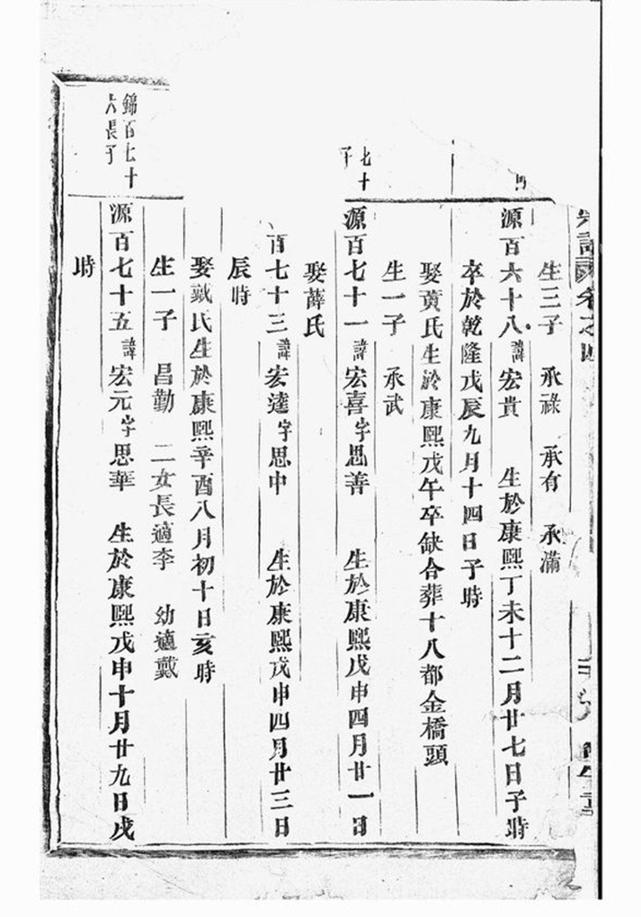 宗譜 卷之四
生三子 承祿 承有 承滿
源百六十八 諱宏貴 生於康熙丁未十二月廿七日子時
卒於乾隆戊辰九月十四日子時
娶黃氏生於康熙戊午卒缺合葬十八都金橋頭
生一子 承武
七十
子
源百七十一 諱宏喜字思善 生於康熙戊申四月廿一日
娶薛氏
百七十三 諱宏達字思中 生於康熙戊申四月廿三日
辰時
娶戴氏生於康熙辛酉八月初十日亥時
生一子 昌勤 二女長適李 幼適戴
錦百七十
六長子
源百七十五 諱宏元字思華 生於康熙戊申十月廿九日戌
時